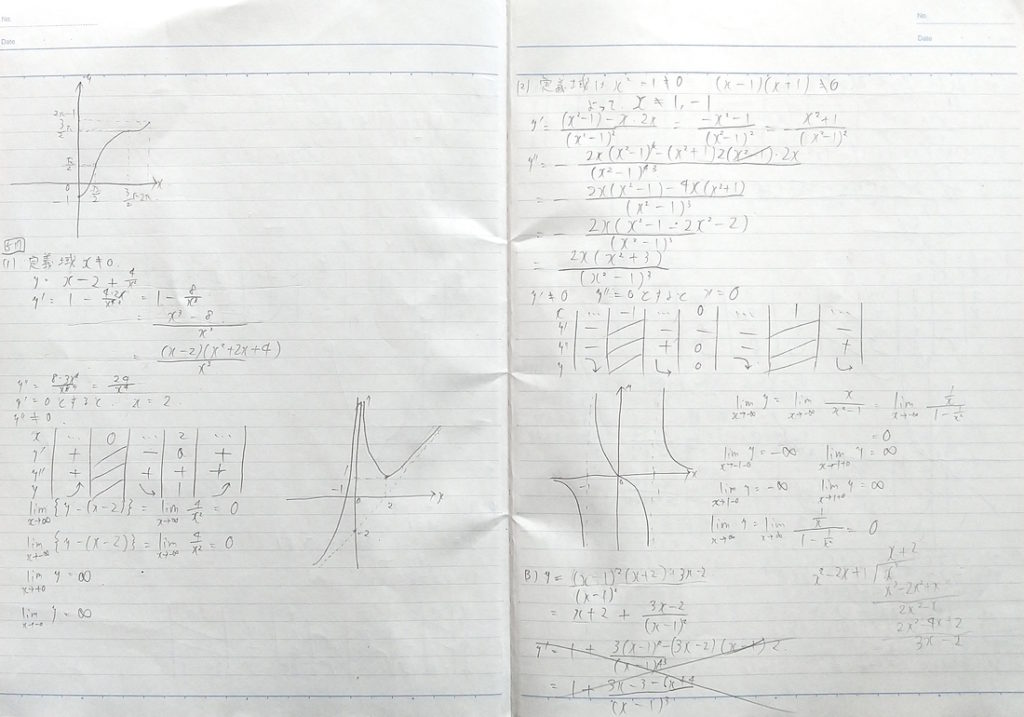 No.
Date
y
2π-1
3/2π
π/2
0
-1
π/2
3/2π
2π
x
(1) 定義域 x≠0
y = x-2+4/x²
y' = 1 - 4·2x/x⁴ = 1 - 8/x³
= x³-8/x³
= (x-2)(x²+2x+4)/x³
y'' = 8·3x²/x⁶ = 24/x⁴
y'=0とすると x=2
y''≠0
x | … | 0 | … | 2 | …
y' | + | | - | 0 | +
y'' | + | | + | + | +
y | | | | 1 |
lim x→∞ {y-(x-2)} = lim x→∞ 4/x² = 0
lim x→-∞ {y-(x-2)} = lim x→-∞ 4/x² = 0
lim x→+0 y = ∞
lim x→-0 y = ∞
y
-1
0
2
x
-2
No.
Date
(2) 定義域は x²-1≠0 (x-1)(x+1)≠0
よって x≠1, -1
y' = (x²-1)-x·2x/(x²-1)² = -x²-1/(x²-1)² = - x²+1/(x²-1)²
y'' = - 2x(x²-1)²-(x²+1)2(x²-1)·2x/(x²-1)⁴ ³
= - 2x(x²-1)-4x(x²+1)/(x²-1)³
= - 2x(x²-1-2x²-2)/(x²-1)³
= 2x(x²+3)/(x²-1)³
y'≠0 y''=0とすると x=0
x | … | -1 | … | 0 | … | 1 | …
y' | - | | - | - | - | | -
y'' | - | | + | 0 | - | | +
y | | | | 0 | | |
y
-1
0
1
x
lim x→-∞ y = lim x→-∞ x/x²-1 = lim x→-∞ 1/x / 1-1/x²
= 0
lim x→-1-0 y = -∞ lim x→-1+0 y = ∞
lim x→1-0 y = -∞ lim x→1+0 y = ∞
lim x→∞ y = lim x→∞ 1/x / 1-1/x² = 0
(3) y = (x-1)²(x+2)+3x-2/(x-1)²
= x+2 + 3x-2/(x-1)²
x+2
x²-2x+1 ) x³
x³-2x²+x
2x²-x
2x²-4x+2
3x-2
y' = 1 + 3(x-1)²-(3x-2)(x-1)·2/(x-1)⁴ ³
= 1 + 3x-3-6x+4/(x-1)³